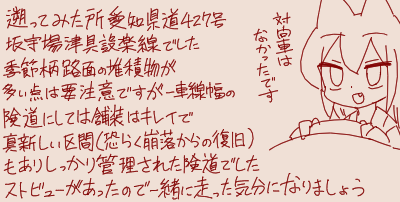 遡ってみた所愛知県道427号
坂宇場津具設楽線でした
季節柄路面の堆積物が
多い点は要注意ですが一車線幅の
険道にしては舗装はキレイで
真新しい区間(恐らく崩落からの復旧)
もありしっかり管理された険道でした
ストビューがあったので一緒に走った気分になりましょう
対向車は
なかったです